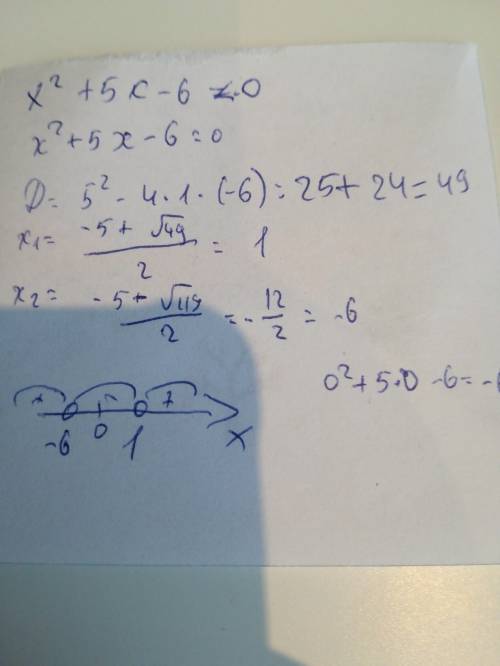 x² + 5x - 6 < 0
x² + 5x - 6 = 0
D = 5² - 4 · 1 · (-6) = 25 + 24 = 49
x₁ = (-5 + √49)/2 = 1
x₂ = (-5 + √49)/2 = -12/2 = -6
0² + 5·0 - 6 = -6
+ - +
-6 0 1 x